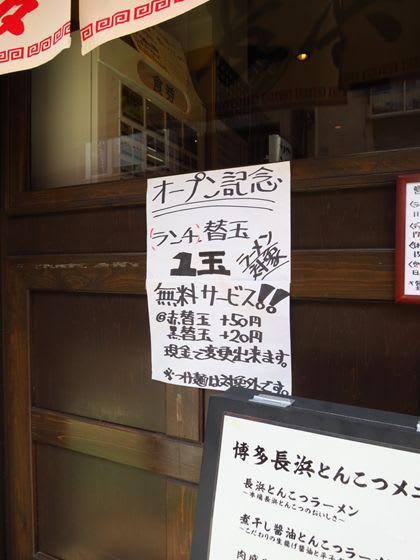 食券
オープン記念
ランチ 替玉
1玉 ラーメン対象
無料サービス!!
@赤替玉 +50円
黒替玉 +20円
現金で変更出来ます。
※つけ麺は対象外です。
博多長浜とんこつメニ
長浜とんこつラーメン
～本場長浜とんこつのおいしさ～
煮干し醤油とんこつラーメ
～こだわりの生揚げ醤油と平子